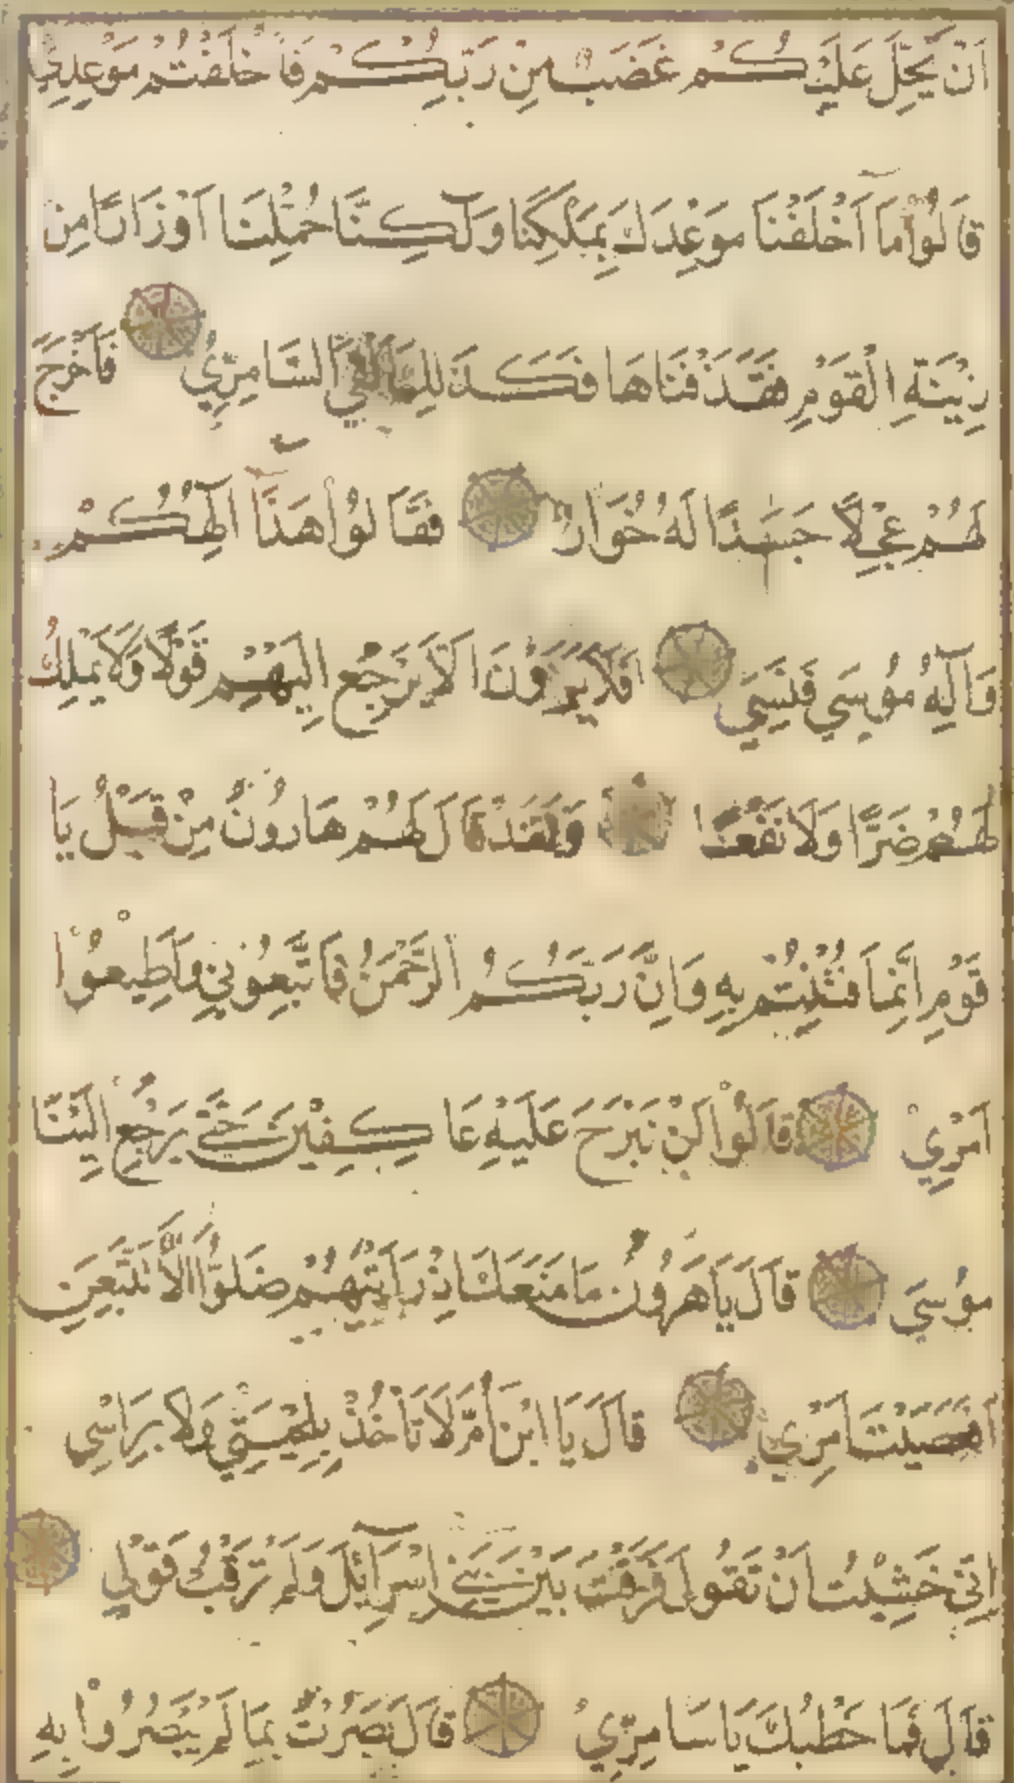 اَنْ يَحِلَّ عَلَيْكُمْ غَضَبٌ مِنْ رَبِّكُمْ فَاَخْلَفْتُمْ مَوْعِدِي
قَالُوْا مَا اَخْلَفْنَا مَوْعِدَكَ بِمَلْكِنَا وَلٰكِنَّا حُمِّلْنَا اَوْزَارًا مِنْ
زِيْنَةِ الْقَوْمِ فَقَذَفْنَاهَا فَكَذَلِكَ اَلْقَي السَّامِرِيُّ فَاَخْرَجَ
لَهُمْ عِجْلًا جَسَدًا لَهُ خُوَارٌ فَقَالُوْا هَذَا اِلٰهُكُمْ
وَاِلٰهُ مُوْسَي فَنَسِيَ اَفَلَا يَرَوْنَ اَلَّا يَرْجِعُ اِلَيْهِمْ قَوْلًا وَلَا يَمْلِكُ
لَهُمْ ضَرًّا وَلَا نَفْعًا وَلَقَدْ قَالَ لَهُمْ هَارُونُ مِنْ قَبْلُ يَا
قَوْمِ اِنَّمَا فُتِنْتُمْ بِهِ وَاِنَّ رَبَّكُمُ الرَّحْمَنُ فَاتَّبِعُوْنِي وَاَطِيْعُوْا
اَمْرِيْ قَالُوْا لَنْ نَبْرَحَ عَلَيْهِ عَاكِفِيْنَ حَتَّي يَرْجِعَ اِلَيْنَا
مُوْسَي قَالَ يَا هَرُوْنُ مَا مَنَعَكَ اِذْ رَاَيْتَهُمْ ضَلُّوْا اَلَّا تَتَّبِعَنِ
اَفَعَصَيْتَ اَمْرِيْ قَالَ يَا ابْنَ اُمَّ لَا تَاْخُذْ بِلِحْيَتِي وَلَا بِرَاْسِي
اِنِّي خَشِيْتُ اَنْ تَقُوْلَ فَرَّقْتَ بَيْنَ بَنِي اِسْرَآئِلَ وَلَمْ تَرْقُبْ قَوْلِي
قَالَ فَمَا خَطْبُكَ يَا سَامِرِيُّ قَالَ بَصُرْتُ بِمَا لَمْ يَبْصُرُوْا بِهِ